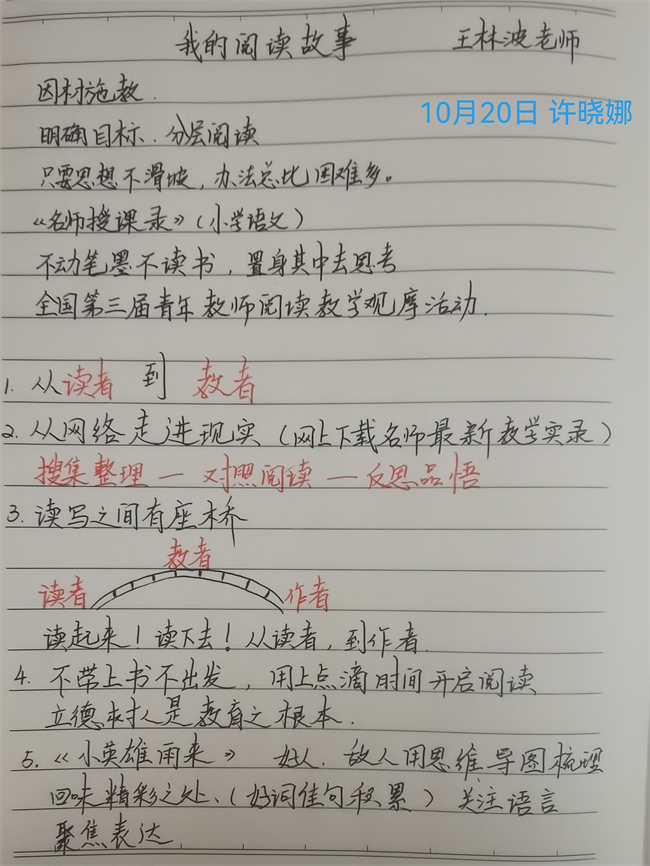 我的阅读故事 王林波老师
因材施教.
10月20日 许晓娜
明确目标、分层阅读
只要思想不滑坡，办法总比困难多。
《名师授课录》（小学语文）
不动笔墨不读书，置身其中去思考
全国第三届青年教师阅读教学观摩活动.
1. 从读者 到 教者
2. 从网络走进现实（网上下载名师最新教学实录）
搜集整理 — 对照阅读 — 反思品悟
3. 读写之间有座桥
教者
读者 作者
读起来！读下去！从读者，到作者.
4. 不带上书不出发，用上点滴时间开启阅读
立德树人是教育之根本.
5.《小英雄雨来》 好人、敌人用思维导图梳理
回味精彩之处、（好词佳句积累）关注语言
聚焦表达